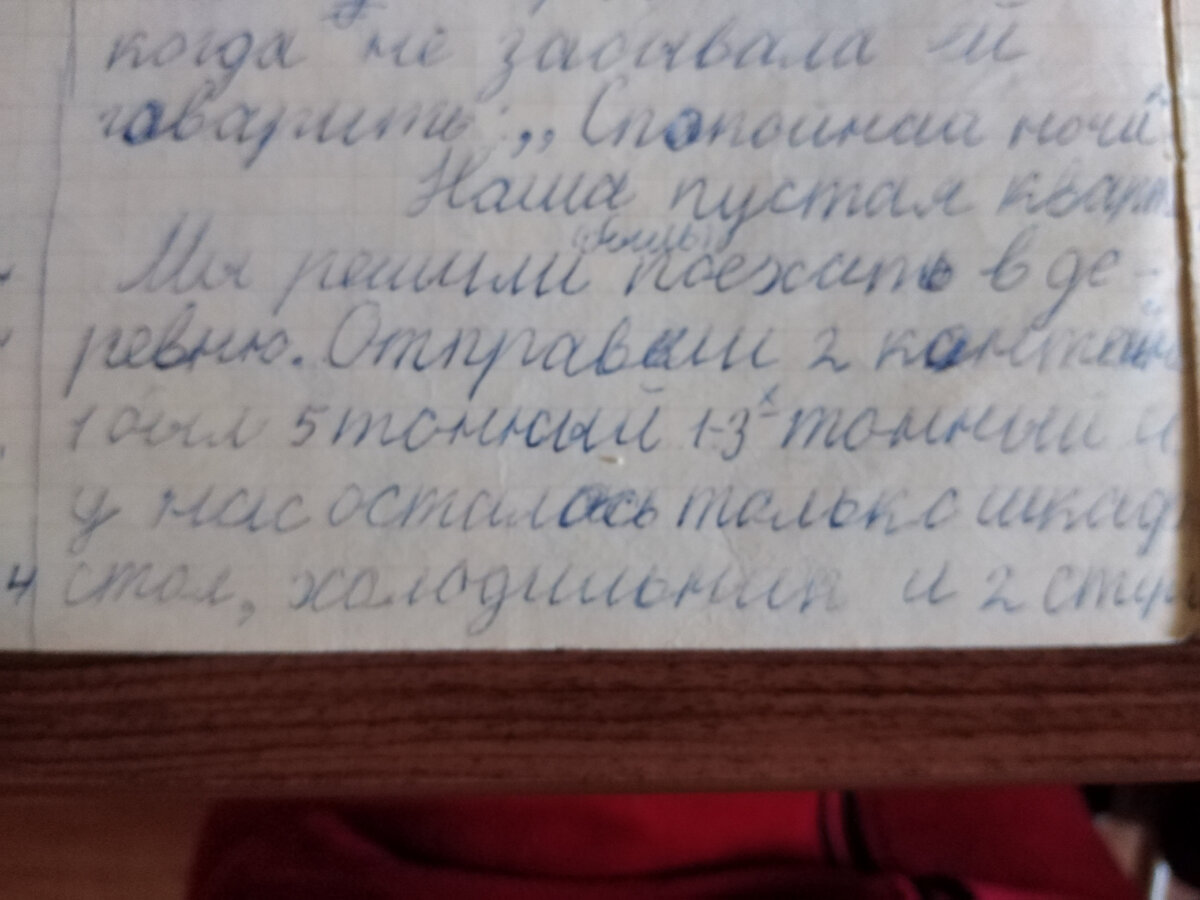 когда не забывала ей
говарить: „Спокойнай ночи
Наша пустая кварт
(быль)
Мы решили поехать в де-
ревню. Отправили 2 контейн
1 был 5 тонный 1-3х тонный и
у нас осталось только шкаф
стол, холодильник и 2 сту